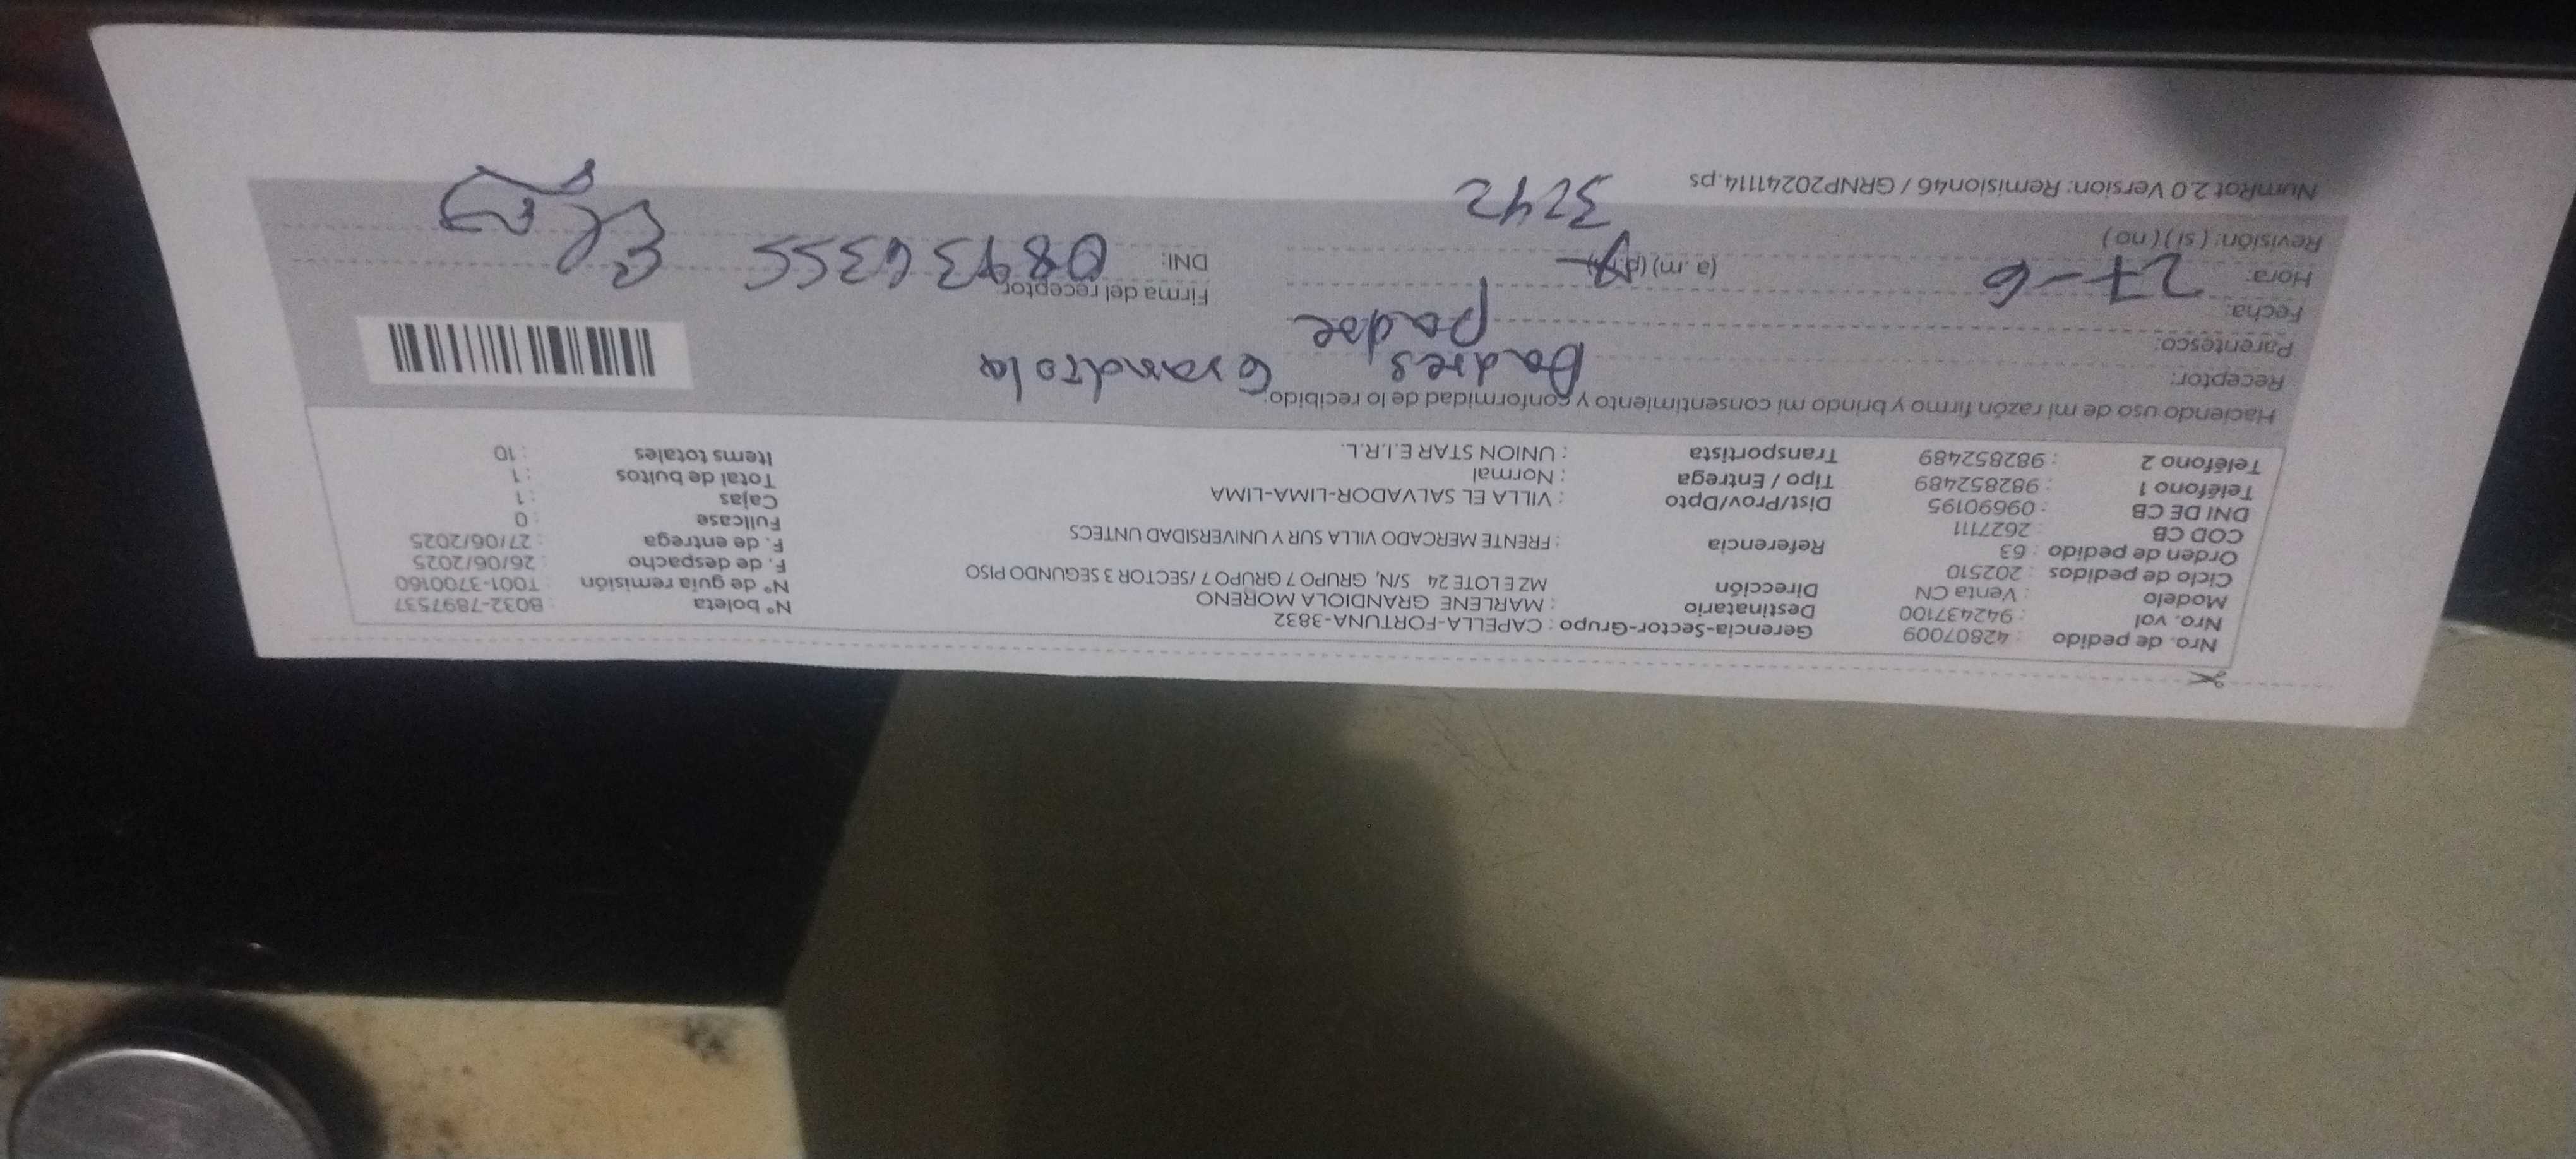 Nro. de pedido : 42807009 Gerencia-Sector-Grupo : CAPELLA-FORTUNA-3832 Nº boleta : B032-7897537
Nro. vol : 942437100 Destinatario : MARLENE GRANDIOLA MORENO Nº de guía remisión : T001-3700160
Modelo : Venta CN Dirección MZ E LOTE 24 S/N, GRUPO 7 GRUPO 7 / SECTOR 3 SEGUNDO PISO F. de despacho : 26/06/2025
Ciclo de pedidos : 202510 F. de entrega : 27/06/2025
Orden de pedido : 63 Referencia : FRENTE MERCADO VILLA SUR Y UNIVERSIDAD UNTECS Fullcase : 0
COD CB : 2627111 Cajas : 1
DNI DE CB : 09690195 Dist/Prov/Dpto : VILLA EL SALVADOR-LIMA-LIMA Total de bultos : 1
Teléfono 1 : 982852489 Tipo / Entrega : Normal Items totales : 10
Teléfono 2 : 982852489 Transportista : UNION STAR E.I.R.L.
Haciendo uso de mi razón firmo y brindo mi consentimiento y conformidad de lo recibido:
Receptor:
Parentesco: padre
Fecha: 27-6 Firma del receptor
Hora: (a. m) DNI:
Revisión: ( si ) ( no ) 3242
NumRot 2.0 Version: Remision46 / GRNP20241114.ps